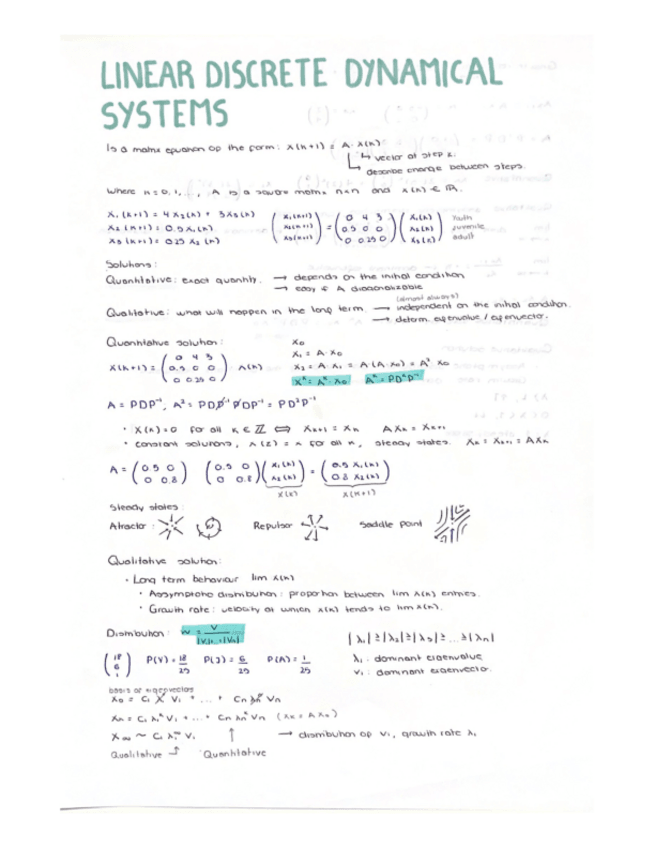 LINEAR DISCRETE DYNAMICAL
SYSTEMS
Is a matrix equation of the form: x(k+1) = A · x(k)
↳ vector at step k.
↳ describe change between steps.
where k = 0, 1, ..., A is a square matrix n×n and x(k) ∈ ℝn.
x₁(k+1) = 4x₂(k) + 3x₃(k) (x₁(k+1) x₂(k+1) x₃(k+1)) = (0 4 3 0.5 0 0 0 0.25 0) (x₁(k) x₂(k) x₃(k)) Youth
x₂(k+1) = 0.5x₁(k) juvenile
x₃(k+1) = 0.25 x₂(k) adult
Solutions:
Quantitative: exact quantity. → depends on the initial condition
→ easy if A diagonalizable
(almost always)
Qualitative: what will happen in the long term. → independent on the initial condition.
→ determ. eigenvalue / eigenvector.
Quantitative solution: x₀
x₁ = A · x₀
x(k+1) = (0 4 3 0.5 0 0 0 0.25 0) · x(k) x₂ = A · x₁ = A(A · x₀) = A² x₀
xᵏ = Aᵏ · x₀ Aᵏ = PDᵏP⁻¹
A = PDP⁻¹, A² = PDP⁻¹PDP⁻¹ = PD²P⁻¹
• x(k) = 0 for all k ∈ ℤ ⟺ xₖ₊₁ = xₖ Axₖ = xₖ₊₁
• constant solutions, x(z) = x for all k, steady states. xₖ = xₖ₊₁ = Axₖ
A = (0.5 0 0 0.8) (0.5 0 0 0.8) (x₁(k) x₂(k)) = (0.5 x₁(k) 0.8 x₂(k))
x(k) x(k+1)
Steady states:
Atractor: Repulsor Saddle point
Qualitative solution:
• Long term behaviour lim x(k)
• Assymptotic distribution: proportion between lim x(k) entries.
• Growth rate: velocity at which x(k) tends to lim x(k).
Distribution: w = V / |V₁|...+|Vₙ| |λ₁| ≥ |λ₂| ≥ |λ₃| ≥ ... ≥ |λₙ|
(18 6 1) P(Y) = 18/25 P(J) = 6/25 P(A) = 1/25 λ₁: dominant eigenvalue
v₁: dominant eigenvector.
basis of eigenvectors
x₀ = C₁ V₁ + ... + Cₙ Vₙ
xₖ = C₁ λ₁ᵏ V₁ + ... + Cₙ λₙᵏ Vₙ (xₖ = A x₀)
x∞ ~ C₁ λ₁∞ V₁ ↑ → distribution of v₁, growth rate λ₁
Qualitative ↑ Quantitative